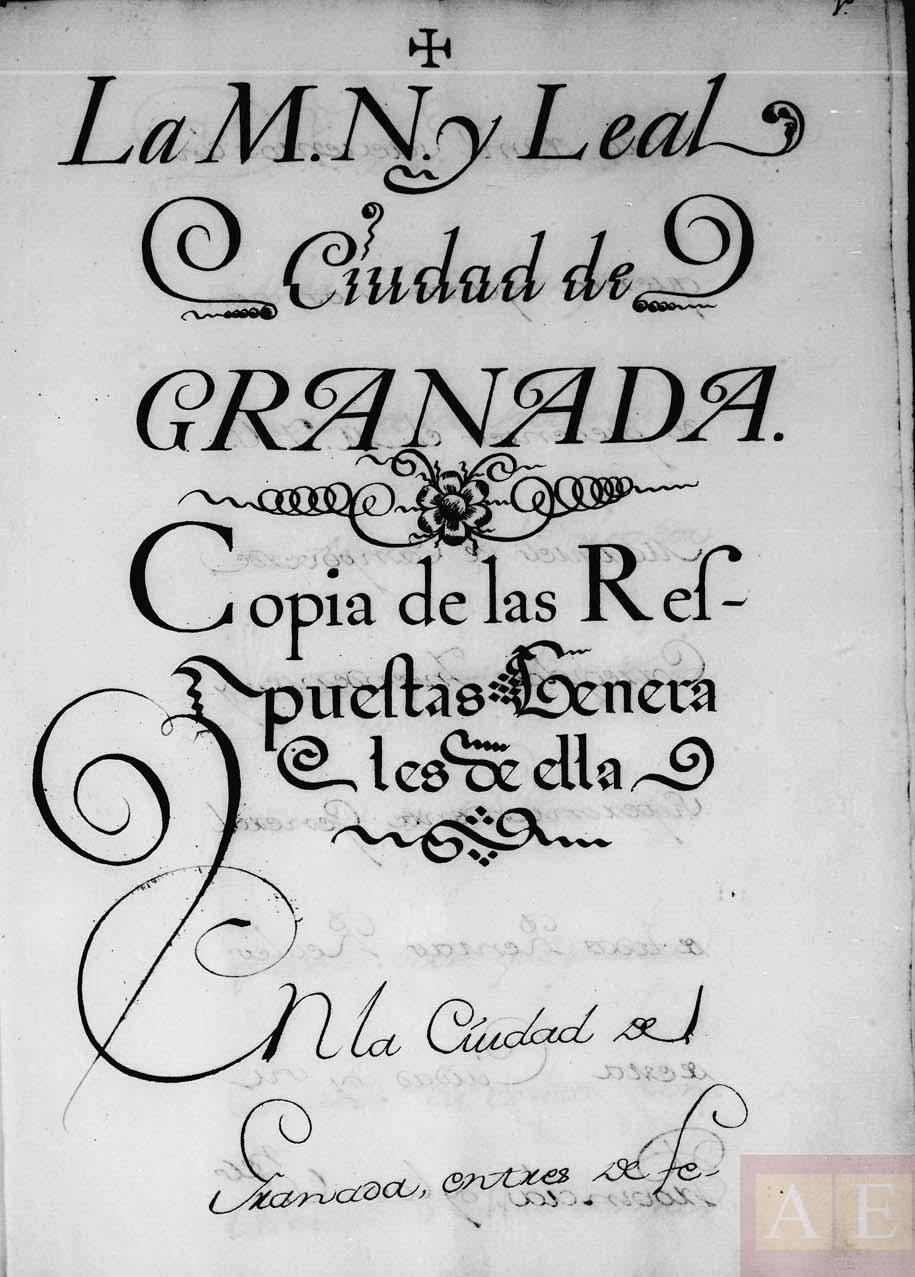 La M. N. y Leal
Ciudad de
GRANADA.
Copia de las Reſ-
pueſtas Genera
les de ella
En la Ciudad de
Granada, en tres de fe-
A E